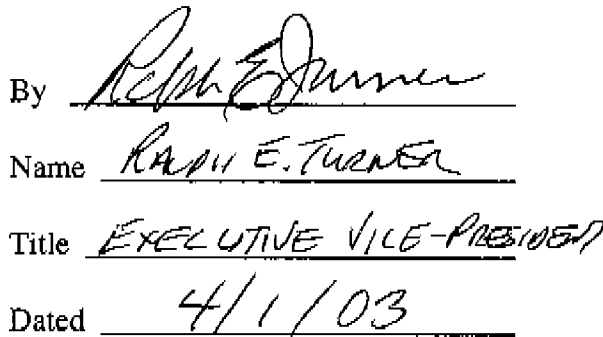 By Ralph E Turner
Name RALPH E. TURNER
Title EXECUTIVE VICE-PRESIDENT
Dated 4/1/03